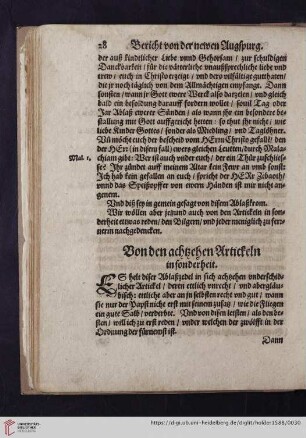 28 Bericht von der newen Augspurg.
der auß kindtlicher Liebe vnnd Gehorsam / zur schuldigen
Danckbarkeit / für die vätterliche vnaußsprechliche liebe vnd
trew / euch in Christo erzeigt / vnd dero vilfältige gutthaten /
die jr noch täglich von dem Allmächtigen empfangt. Dann
sonsten / wann jr Gott ewere Werck also darzelen / vnd gleich
bald ein besoldung darauff fordern wollet / souil Tag oder
Jar Ablaß ewerer Sünden / als wann jhr ein besondere be
stallung mit Gott auffgericht hetten: so thut jhr nicht / wie
liebe Kinder Gottes / sonder als Miedling / vnd Taglöhner.
Vñ möchte euch der bescheid vom HErrn Christo gefallẽ / den
der HErr (in disem fall) ewers gleichen Leuten / durch Mala-
Mal. 1. chiam gibt: Wer ist auch vnder euch / der ein Thür zuschlies-
se? Ihr zündet auff meinem Altar kein Fewr an vmb sonst:
Ich hab kein gefallen an euch / spricht der HERR Zebaoth /
vnnd das Speißopffer von ewern Händen ist mir nicht an-
genem.
Vnd diß sey in gemein gesagt von disem Ablaßkrom.
Wir wöllen aber jetzund auch von den Artickeln in son-
derheit etwas reden / den Bilgern / vnd jeder meniglich zu fer-
nerm nachgedencken.
Von den achtzehen Artickeln
in sonderheit.
ES helt diser Ablaßzedel in sich achtzehen vnderschid-
licher Artickel / deren ettlich vnrecht / vnd abergläu-
bisch: ettliche aber an jn selbsten recht vnd gut / wann
sie nur der Papst nicht erst mit seinem zusatz / wie die Fliegen
ein gute Salb / verderbte. Vnd von disen letsten / als den be-
sten / will ich zu erst reden / vnder welchen der zwölfft in der
Ordnung der fürnemst ist.
Dann
UNIVERSITÄTS-
BIBLIOTHEK
HEIDELBERG
https://digi.ub.uni-heidelberg.de/diglit/holder1588/0030